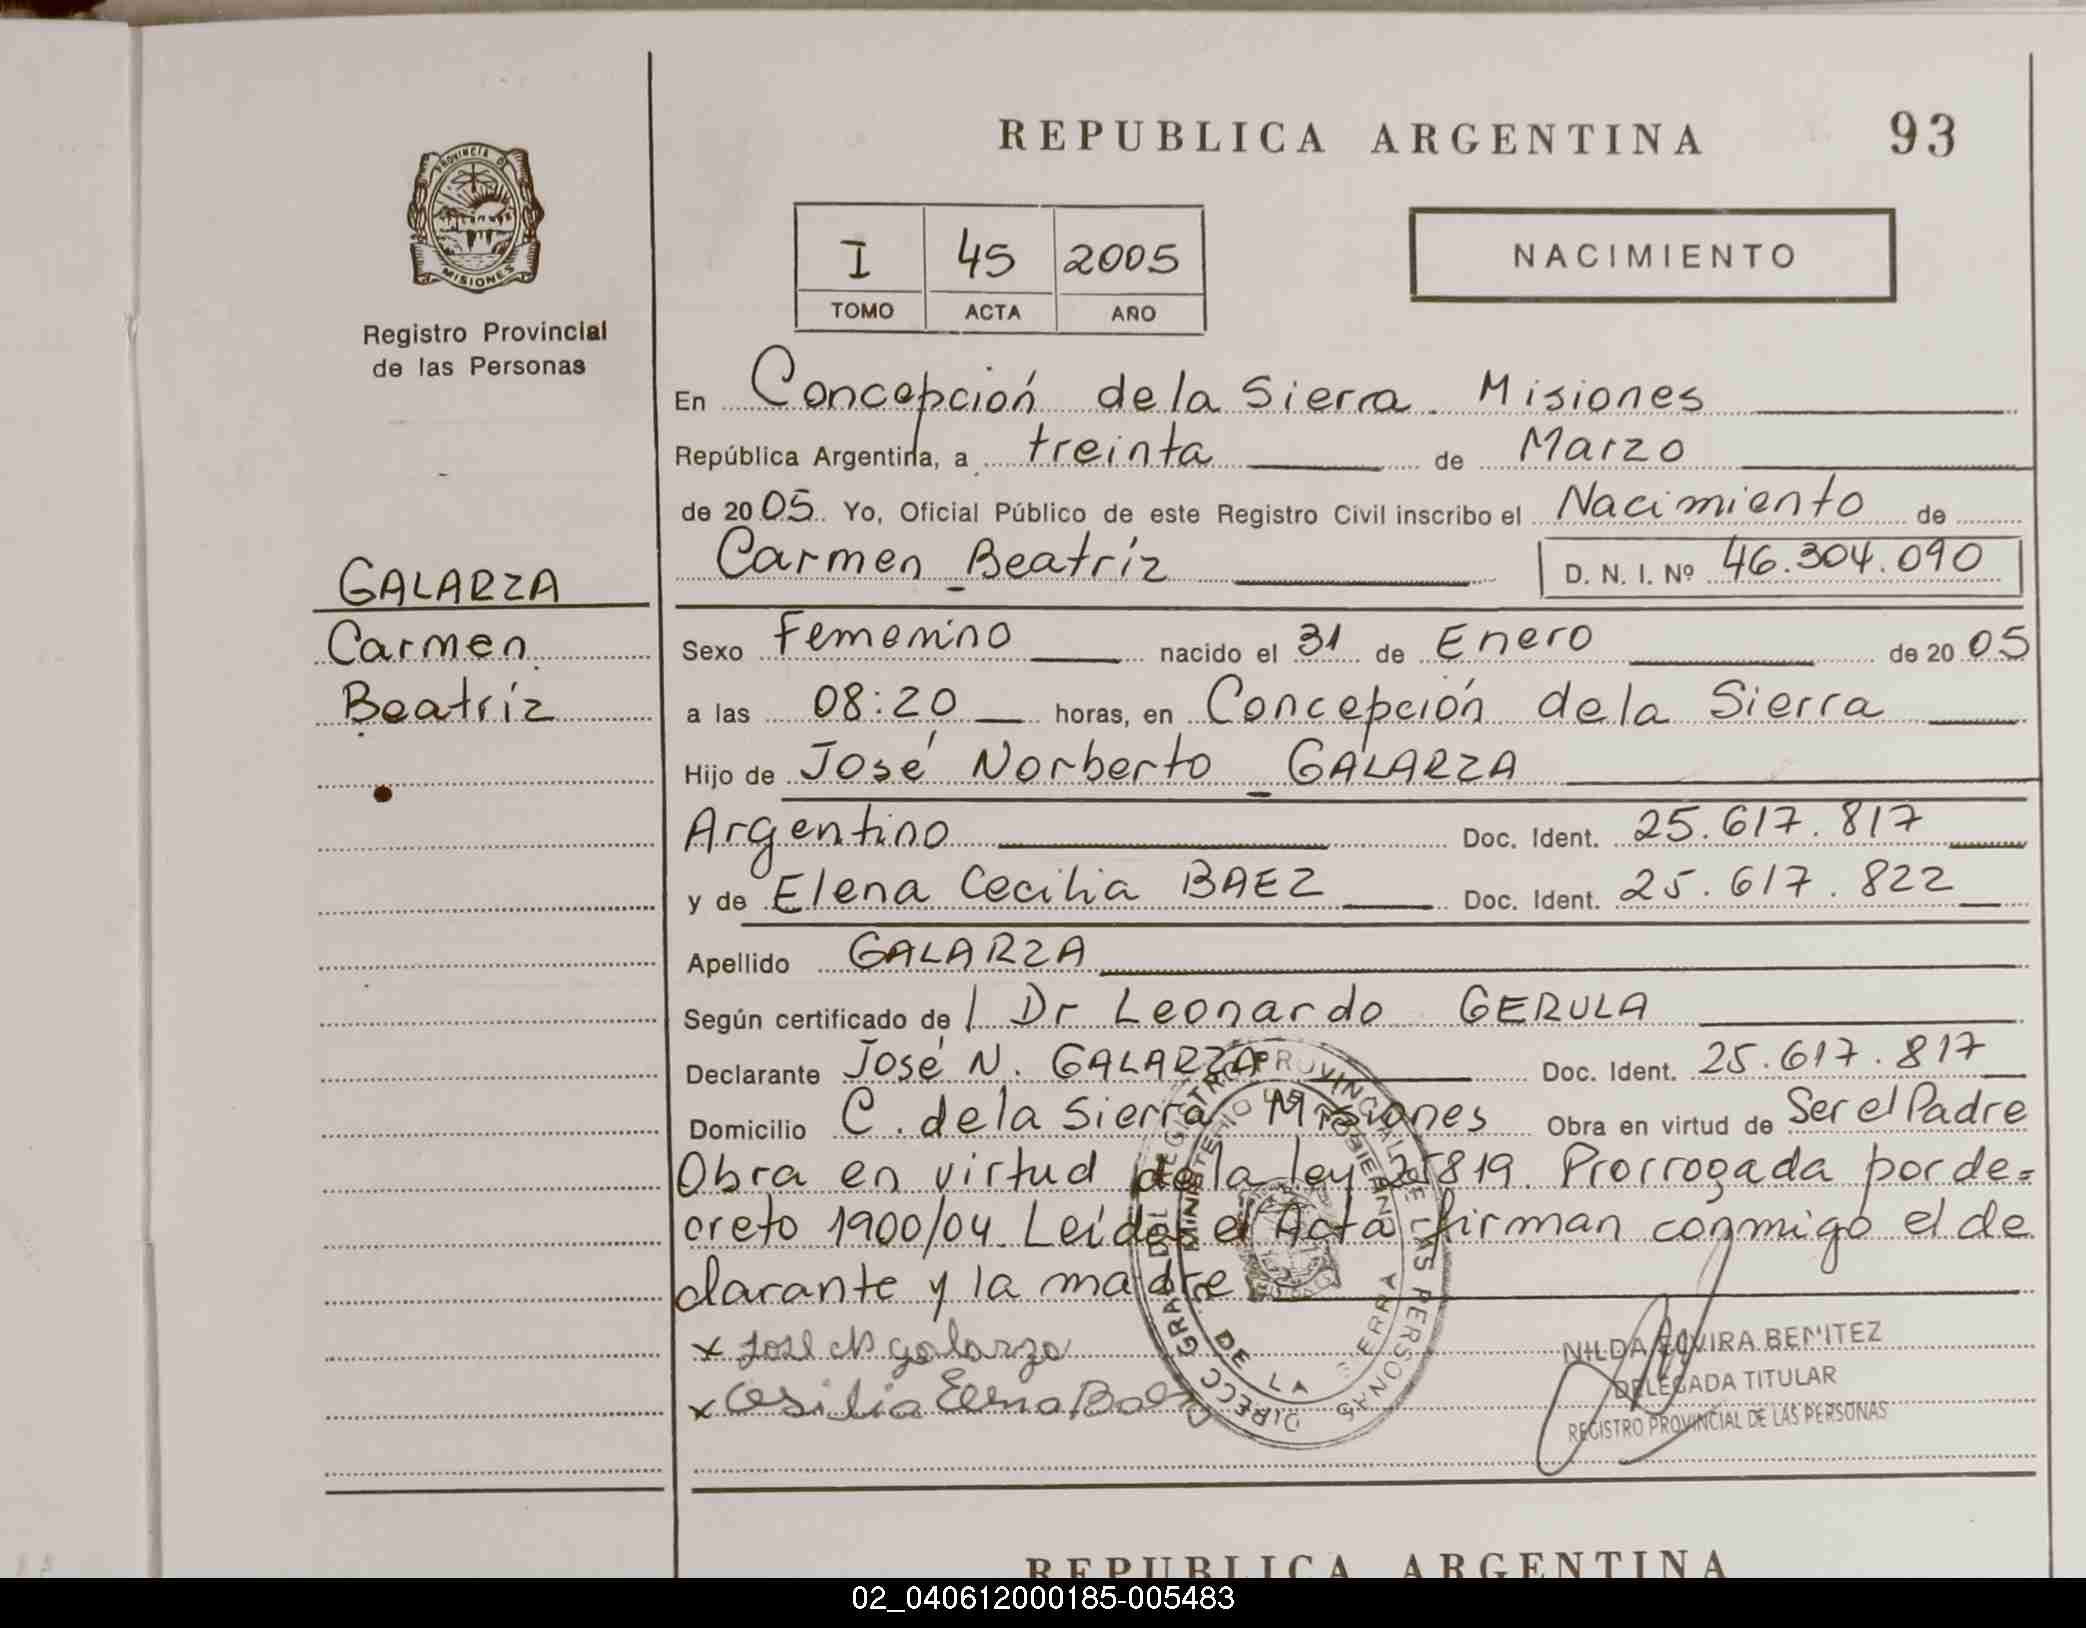 REPUBLICA ARGENTINA 93
PROVINCIA DE
MISIONES
Registro Provincial
de las Personas
I 45 2005
TOMO ACTA AÑO
NACIMIENTO
En Concepción de la Sierra. Misiones
República Argentina, a treinta de Marzo
de 2005. Yo, Oficial Público de este Registro Civil inscribo el Nacimiento de
Carmen Beatríz D. N. I. Nº 46.304.090
GALARZA
Carmen
Beatríz
Sexo Femenino nacido el 31 de Enero de 2005
a las 08:20 horas, en Concepción de la Sierra
Hijo de José Norberto GALARZA
Argentino Doc. Ident. 25.617.817
y de Elena Cecilia BAEZ Doc. Ident. 25.617.822
Apellido GALARZA
Según certificado de l Dr Leonardo GERULA
Declarante José N. GALARZA Doc. Ident. 25.617.817
Domicilio C. de la Sierra Misiones Obra en virtud de Ser el Padre
Obra en virtud de la ley 25819. Prorrogada por de=
creto 1900/04. Leída el Acta firman conmigo el de
clarante y la madre
x José N galarza
x Cesilia Elena Baez
DIRECC GRAL DEL REGISTRO PROVINCIAL DE LAS PERSONAS
MINISTERIO DE GOBIERNO
DE LA SIERRA
NILDA ELVIRA BENITEZ
DELEGADA TITULAR
REGISTRO PROVINCIAL DE LAS PERSONAS
REPUBLICA ARGENTINA
02_040612000185-005483